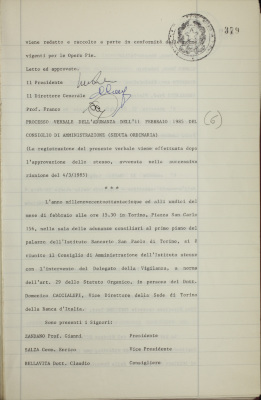 379
viene redatto e raccolto a parte in conformità
vigenti per le Opere Pie.
Letto ed approvato.
Il Presidente
Il Direttore Generale
Prof. Franci
(6)
PROCESSO VERBALE DELL'ADUNANZA DELL'11 FEBBRAIO 1985 DEL
CONSIGLIO DI AMMINISTRAZIONE (SEDUTA ORDINARIA)
(La registrazione del presente verbale viene effettuata dopo
l'approvazione dello stesso, avvenuta nella successiva
riunione del 4/3/1985)
* * *
L'anno millenovecentottantacinque ed alli undici del
mese di febbraio alle ore 15.30 in Torino, Piazza San Carlo
156, nella sala delle adunanze consiliari al primo piano del
palazzo dell'Istituto Bancario San Paolo di Torino, si è
riunito il Consiglio di Amministrazione dell'Istituto stesso
con l'intervento del Delegato della Vigilanza, a norma
dell'art. 25 dello Statuto Organico, in persona del Dott.
Domenico CACCIALEPI, Vice Direttore della Sede di Torino
della Banca d'Italia.
Sono presenti i Signori:
ZANDANO Prof. Gianni Presidente
SALZA Comm. Enrico Vice Presidente
BELLAVITA Dott. Claudio Consigliere